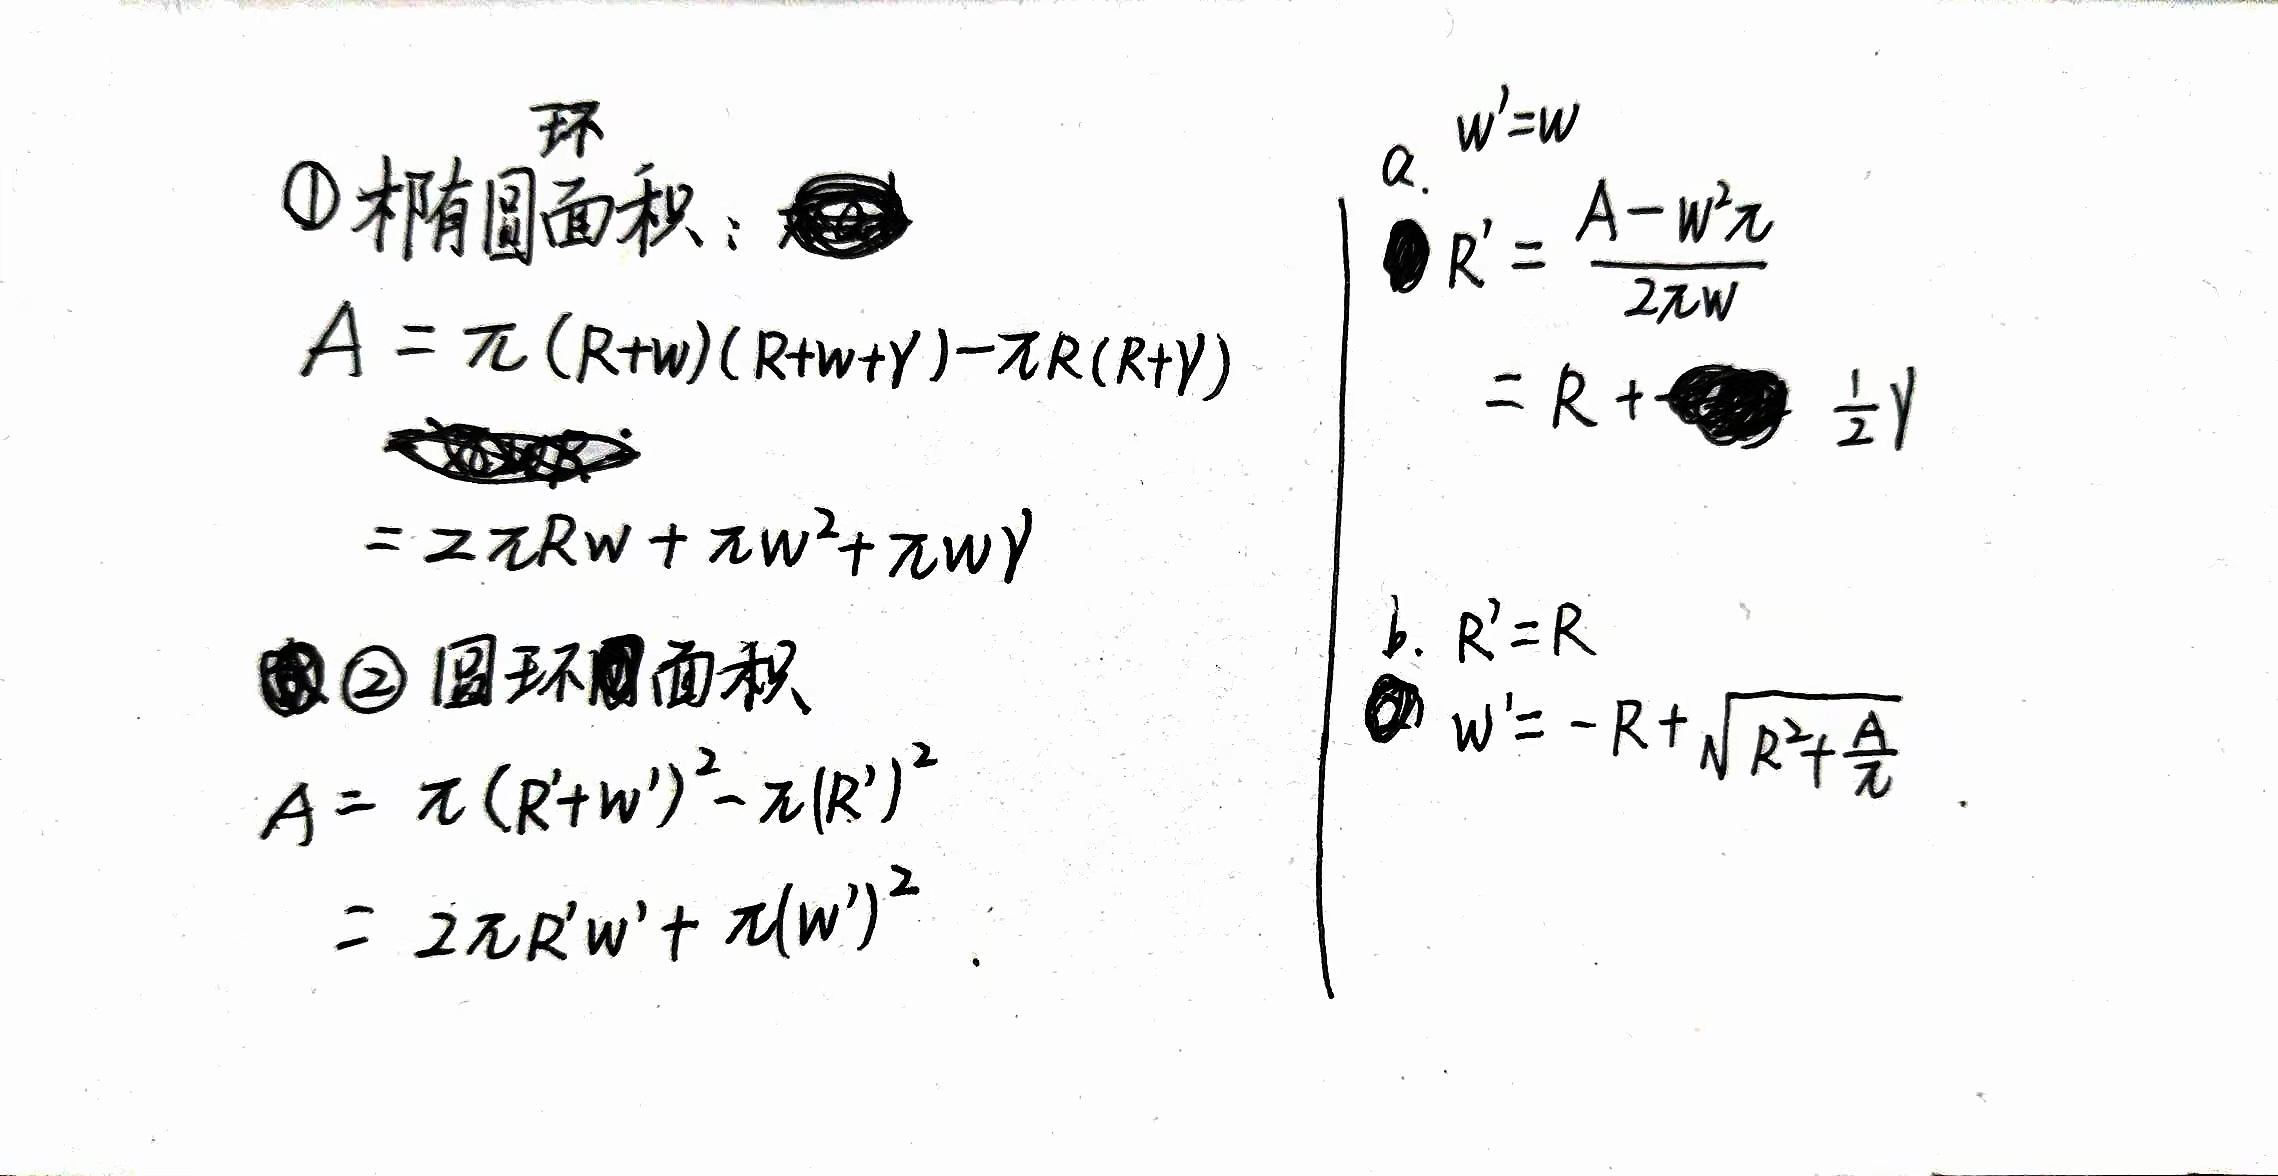 ①椭圆环面积：
A = π(R+w)(R+w+γ)-πR(R+γ)
= 2πRw + πw²+πwγ
② 圆环面积
A = π(R'+w')²-π(R')²
= 2πR'w'+ π(w')²
a. w'=w
R' = (A-w²π)/(2πw)
= R + 1/2 γ
b. R'=R
w'= -R+√(R²+A/π)